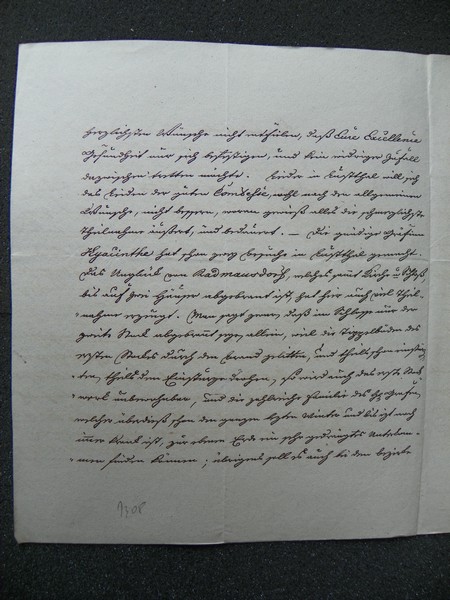 herzlichsten Wünsche nicht enthülen, daß Eure Excellence
Gesundheit nur sich befestigen, und kein widriger Zufall
dazwischen tretten möchte. Leider in Lustthal will sich
das Leiden der guten Comtesse, wohl nach den allgemeinen
Wünsche, nicht bessern, woran gewiß alles die schmerzlichste
Theilnahme äußert, und bedauert. — Die gnädige Gräfin
Hyacinthe hat schon zwey besuche in Lustthal gemacht.
Das Unglück von Radmansdorf, welches samt Kirche u. Schloß,
bis auf zwei Häuser abgebrannt ist, hat hier auch viel Theil-
nahme erzeugt. Man sagt zwar, daß im Schlosse nur der
zweite Stock abgebrannt sey, allein, weil die Tippelböden des
ersten Stockes durch den Brand gelitten, und theils schon
theils den Einsturze drohen, so wird auch das erste Stock-
werk unbewohnbar, und die zahlreiche Familie des Grafen,
welcher überdieß schon den ganzen letzten Winter und bis itzt noch
immer krank ist, zur ebenen Erde ein sehr gedrängtes Unterkom-
men finden können; übrigens soll es auch bei dem bezirks